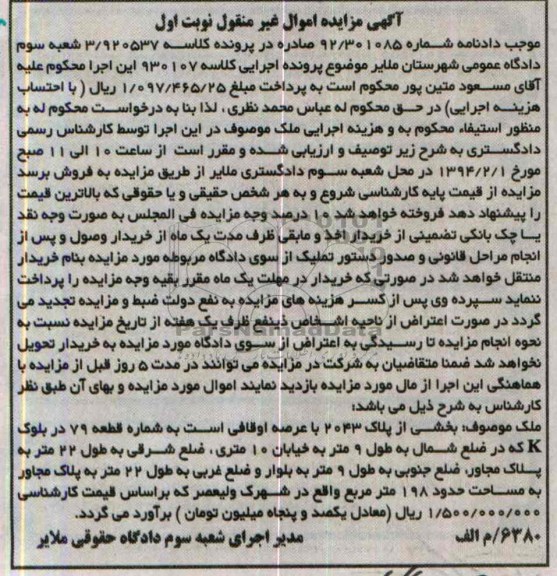 آگهی مزایده اموال غیر منقول نوبت اول
موجب دادنامه شماره ۹۲/۳۰۱۰۸۵ صادره در پرونده کلاسه ۳/۹۲۰۵۳۷ شعبه سوم
دادگاه عمومی شهرستان ملایر موضوع پرونده اجرایی کلاسه ۹۳۰۱۰۷ این اجرا محکوم علیه
آقای مسعود متین پور محکوم است به پرداخت مبلغ ۱/۰۹۷/۴۶۵/۲۵ ریال ( با احتساب
هزینه اجرایی) در حق محکوم له عباس محمد نظری ، لذا بنا به درخواست محکوم له به
منظور استیفاء محکوم به و هزینه اجرایی ملک موصوف در این اجرا توسط کارشناس رسمی
دادگستری به شرح زیر توصیف و ارزیابی شده و مقرر است از ساعت ۱۰ الی ۱۱ صبح
مورخ ۱۳۹۴/۲/۱ در محل شعبه سوم دادگستری ملایر از طریق مزایده به فروش برسد
مزایده از قیمت پایه کارشناسی شروع و به هر شخص حقیقی و یا حقوقی که بالاترین قیمت
را پیشنهاد دهد فروخته خواهد شد ۱۰ درصد وجه مزایده فی المجلس به صورت وجه نقد
یا چک بانکی تضمینی از خریدار اخذ و مابقی ظرف مدت یک ماه از خریدار وصول و پس از
انجام مراحل قانونی و صدور دستور تملیک از سوی دادگاه مربوطه مورد مزایده بنام خریدار
منتقل خواهد شد در صورتی که خریدار در مهلت یک ماه مقرر بقیه وجه مزایده را پرداخت
ننماید سپرده وی پس از کسر هزینه های مزایده به نفع دولت ضبط و مزایده تجدید می
گردد در صورت اعتراض از ناحیه اشخاص ذینفع ظرف یک هفته از تاریخ مزایده نسبت به
نحوه انجام مزایده تا رسیدگی به اعتراض از سوی دادگاه مورد مزایده به خریدار تحویل
نخواهد شد ضمنا متقاضیان به شرکت در مزایده می توانند در مدت ۵ روز قبل از مزایده با
هماهنگی این اجرا از مال مورد مزایده بازدید نمایند اموال مورد مزایده و بهای آن طبق نظر
کارشناس به شرح ذیل می باشد:
ملک موصوف: بخشی از پلاک ۲۰۴۳ با عرصه اوقافی است به شماره قطعه ۷۹ در بلوک
K که در ضلع شمال به طول ۹ متر به خیابان ۱۰ متری ، ضلع شرقی به طول ۲۲ متر به
پلاک مجاور، ضلع جنوبی به طول ۹ متر به بلوار و ضلع غربی به طول ۲۲ متر به پلاک مجاور
به مساحت حدود ۱۹۸ متر مربع واقع در شهرک ولیعصر که براساس قیمت کارشناسی
۱/۵۰۰/۰۰۰/۰۰۰ ریال (معادل یکصد و پنجاه میلیون تومان ) برآورد می گردد.
۶۳۸۰/م الف مدیر اجرای شعبه سوم دادگاه حقوقی ملایر
ParsNamadData